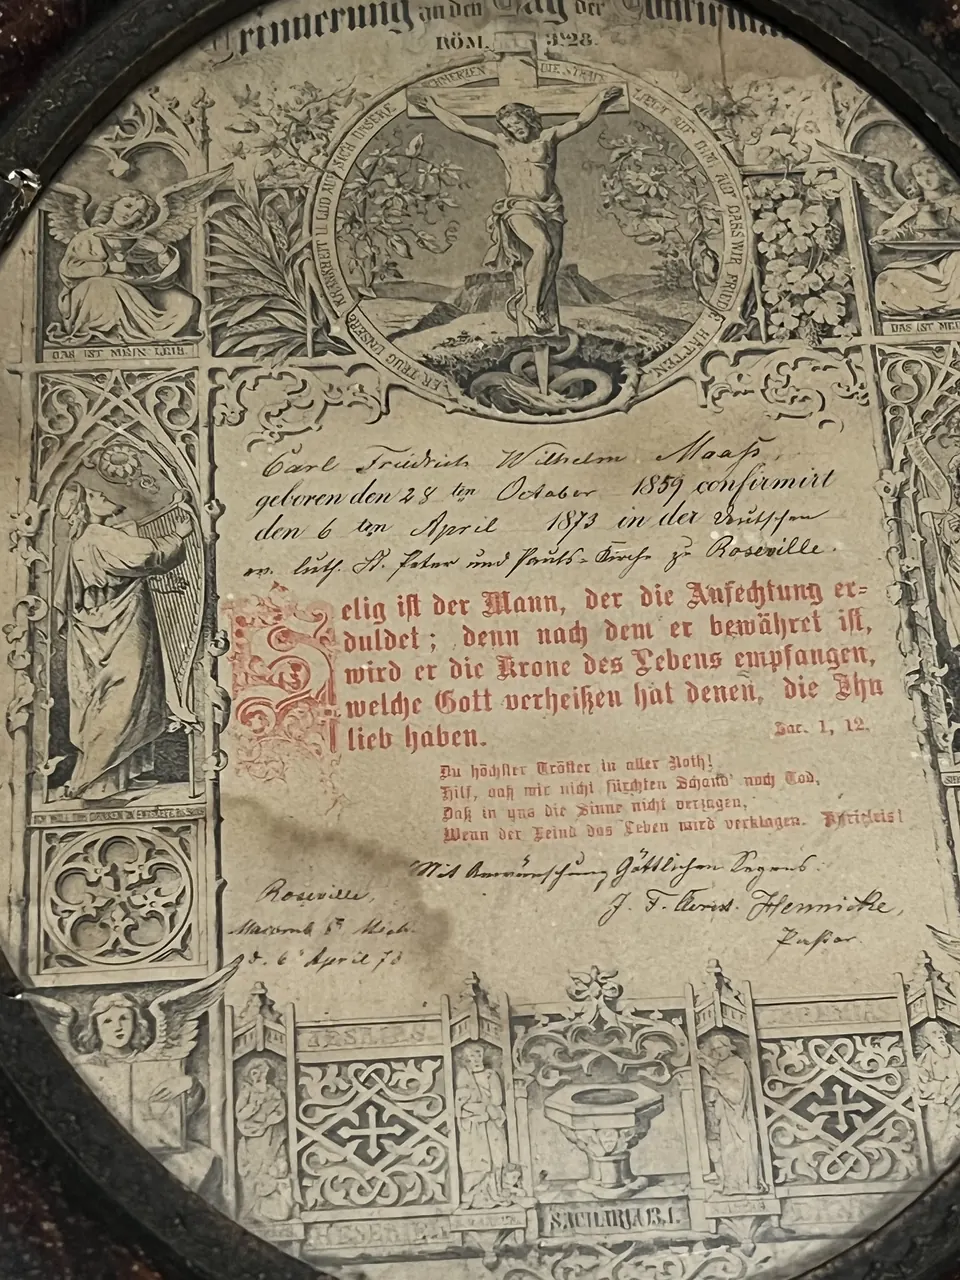 Erinnerung an den Tag der
RÖM. 3. 28.
ER TRUG UNSERE KRANKHEIT U. LUD AUF SICH UNSERE SCHMERZEN DIE STRAFE LIEGT AUF IHM AUF DASS WIR FRIEDE HÄTTEN
DAS IST MEIN LEIB.
DAS IST MEIN
Carl Friedrich Wilhelm Maaß,
geboren den 28 ten October 1859 confirmirt
den 6 ten April 1873 in der deutschen
ev. luth. St. Peter und Pauls-Kirche zu Roseville.
Selig ist der Mann, der die Anfechtung er=
duldet; denn nach dem er bewähret ist,
wird er die Krone des Lebens empfangen,
welche Gott verheißen hat denen, die Ihn
lieb haben.
Jac. 1, 12.
Du höchster Tröster in aller Noth!
Hilf, daß wir nicht fürchten Schand' noch Tod,
Daß in uns die Sinne nicht verzagen,
Wenn der Feind das Leben wird verklagen. Kyrieleis!
Mit Anwünschung Göttlichen Segens
Roseville,
J. F. Hennicke,
Macomb Co Mich.
Pastor.
d. 6 April 73
JESAIAS
JEREMIAS
HESEKIEL
SACHARJA 13. 1.